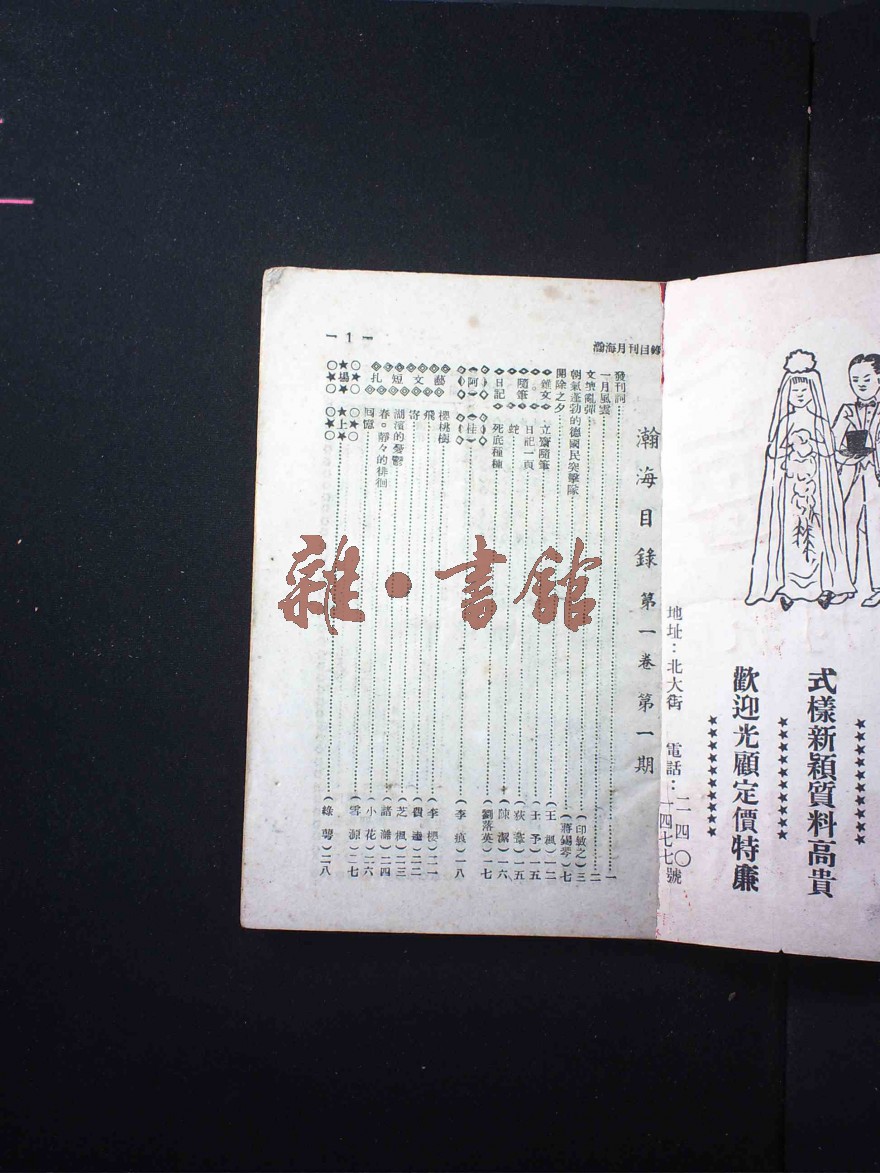 式樣新穎質料高貴
歡迎光顧定價特廉
地址：北大街　二四〇號
電話：一四七七
瀚海月刊目錄
— 1 —
瀚海目錄 第一卷 第一期
發刊詞 一
一月風雲 二
文壇亂彈（印敏之）三
朝氣蓬勃的德國民突擊隊（蔣錫琴）七
開除之夕（王楓）一二
雜文。隨筆。日記
立齋隨筆（王予）一五
日記一頁（荻葦）一五
蛇（陳潔）一六
死底種種（劉落英）一七
（阿）（桂）（李痕）一八
文藝短扎
櫻桃樹（李櫻）二一
飛（費逢）二二
寄（芝楓）二三
湖濱的憂鬱（諸瀚）二四
春。靜々的徘徊（小花）二六
回憶（雪源）二七
★場★
★上★（綠萼）二八
雜·書館